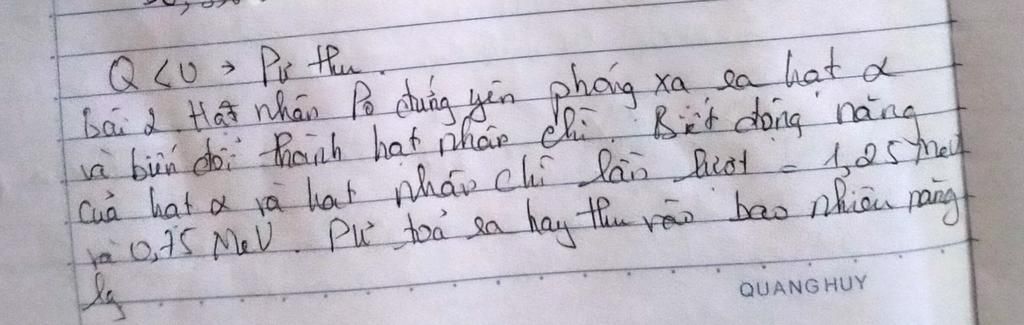 Q < 0 → Pư thu.
Bài 2. Hạt nhân Po đứng yên phóng xạ ra hạt α
và biến đổi thành hạt nhân chì. Biết động năng
của hạt α và hạt nhân chì lần lượt = 1,25 MeV
và 0,75 MeV. Pư toả ra hay thu vào bao nhiêu năng
lg
QUANG HUY